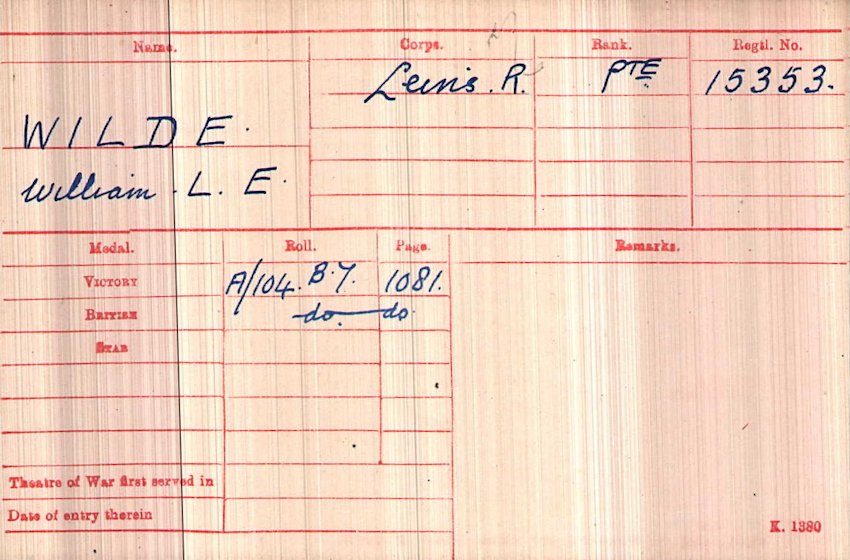 Name. Corps. Rank. Regtl. No.
Leins. R. PTE 15353.
WILDE.
William. L. E.
Medal. Roll. Page. Remarks.
VICTORY A/104. B.Y. 1081.
BRITISH -do- do
STAR
Theatre of War first served in
Date of entry therein
K. 1380